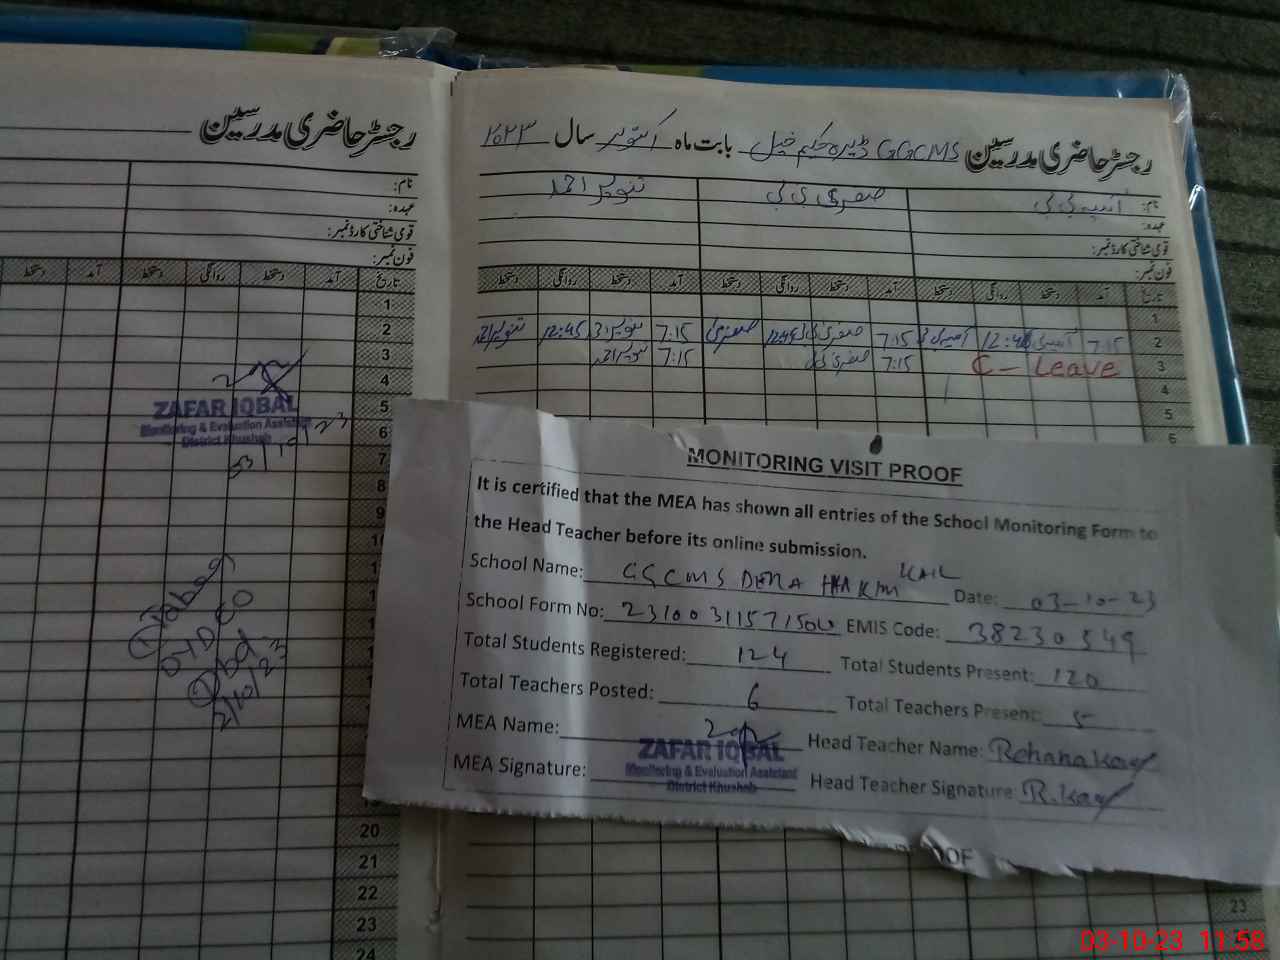 رجسٹر حاضری مدرسین
نام:
عہدہ:
قومی شناختی کارڈ نمبر:
فون نمبر:
تاریخ آمد دستخط روانگی دستخط آمد
1
2
3
4
5
6
7
8
9
20
21
22
23
24
ZAFAR IQBAL
Monitoring & Evaluation Assistant
District Khushab
03/10/23
2/10/23
رجسٹر حاضری مدرسین GGCMS ڈیرہ حکیم خیل بابت ماہ اکتوبر سال ۲۰۲۳
نام: آسیہ بی بی صغری بی بی تنویر احمد
عہدہ:
قومی شناختی کارڈ نمبر:
فون نمبر:
تاریخ آمد دستخط روانگی دستخط آمد دستخط روانگی دستخط آمد دستخط روانگی دستخط
1
2 7:15 12:45 7:15 12:45 صغری 7:15 12:45
3 C - Leave 7:15 7:15
4
5
6
MONITORING VISIT PROOF
It is certified that the MEA has shown all entries of the School Monitoring Form to
the Head Teacher before its online submission.
School Name: GGCMS DERA HAKIM KAIL Date: 03-10-23
School Form No: EMIS Code: 38230549
Total Students Registered: 124 Total Students Present: 120
Total Teachers Posted: 6 Total Teachers Present: 5
MEA Name: ZAFAR IQBAL Head Teacher Name: Rehana Kay
Monitoring & Evaluation Assistant
District Khushab
MEA Signature: Head Teacher Signature: R.Kay
OOF
23
03-10-23 11:58